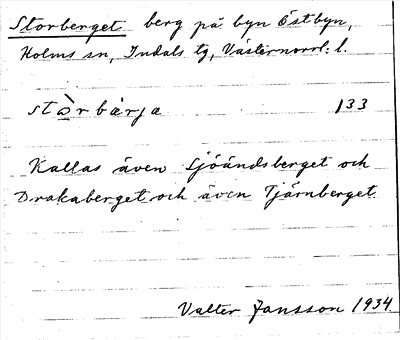 Storberget berg på byn Östbyn,
Holms sn, Indals tg, Västernorrl. l.
stòrbärja 133
Kallas även Sjöändsberget och
Drakaberget och även Tjärnberget.
Valter Jansson 1934